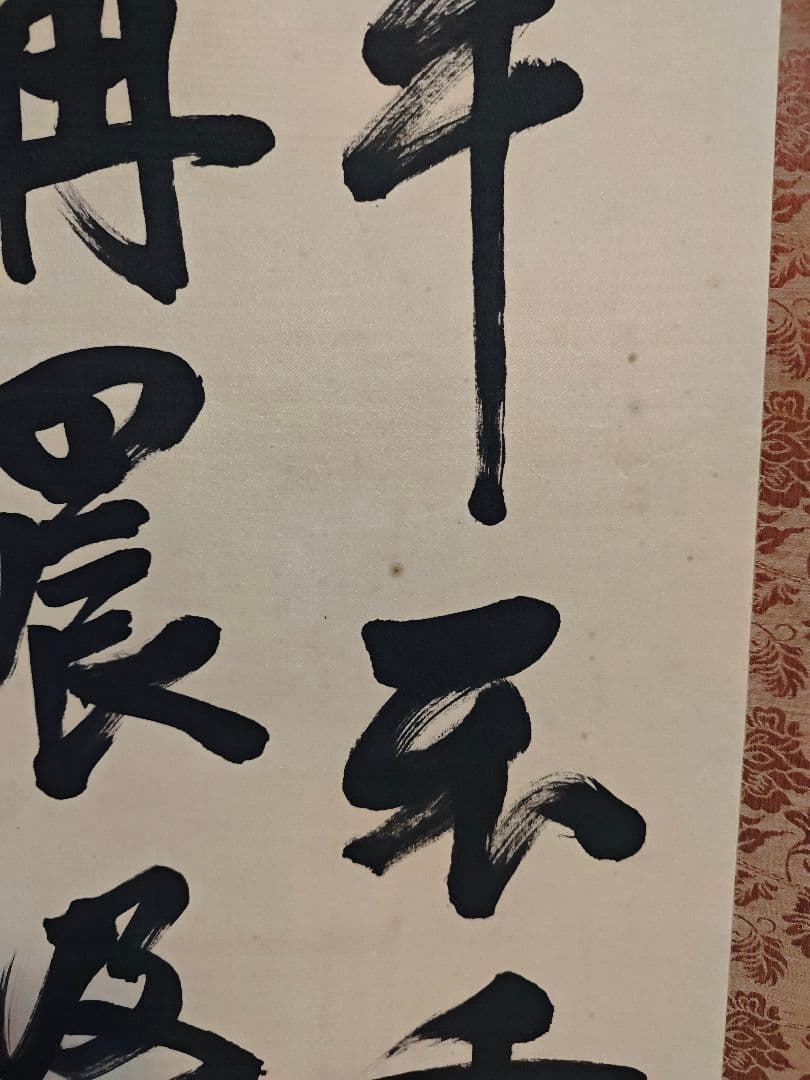 年不重
再晨及